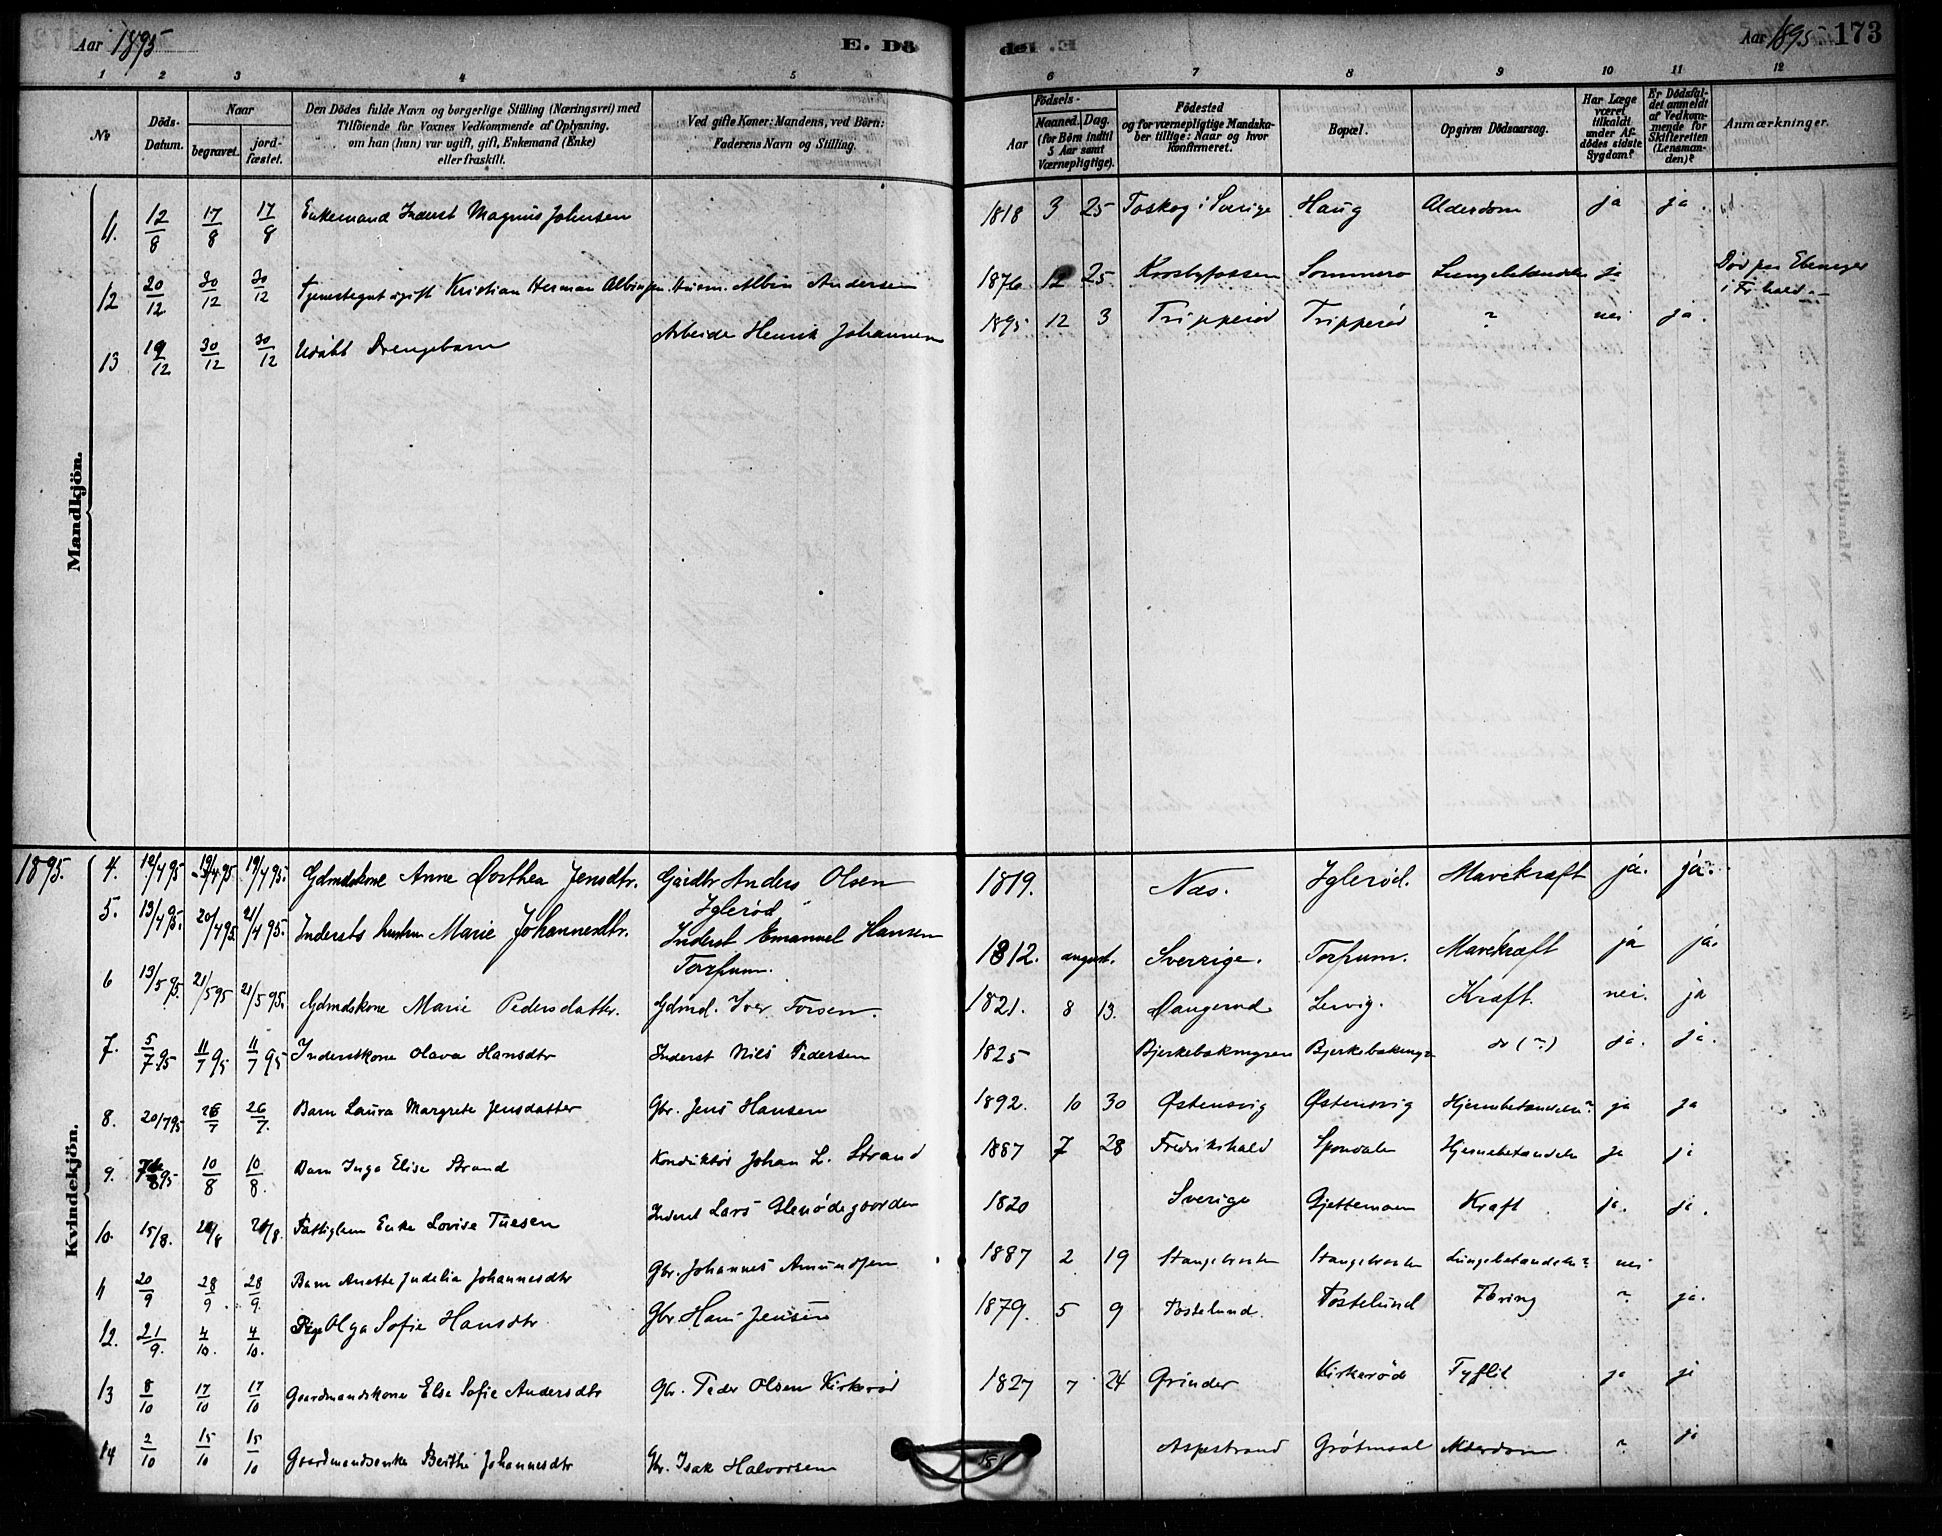 Aar 1895 E. Dö
döl E. Aar 1895. 173
1 2 3 4 5 6 7 8 9 10 11 12
No
Döds-Datum.
Naar
begravet.
jord-fæstet.
Den Dödes fulde Navn og borgerlige Stilling (Næringsvei) med
Tilföiende for Voxnes Vedkommende af Oplysning,
om han (hun) var ugift, gift, Enkemand (Enke)
eller fraskilt.
Ved gifte Koner: Mandens, ved Börn:
Faderens Navn og Stilling.
Födsels-
Aar
Maaned. Dag.
(for Börn indtil
5 Aar samt
Værnepligtige).
Födested
og for værnepligtige Mandska-
ber tillige: Naar og hvor
konfirmeret.
Bopæl.
Opgiven Dödsaarsag.
Har Læge
været
tilkaldt
under Af-
dödes sidste
Sygdom?
Er Dödsfal-
det anmeldt
af Vedkom-
mende for
Skifteretten
(Lensman-
den)?
Anmærkninger.
Mandkjön.
11. 12/8 17/8 17/8 Enkemand Inderst Magnus Johnsen 1818 3 25 Toskog i Sverige Haug Alderdom ja ja.
12 20/12 30/12 30/12 Tjenestegut ugift Kristian Herman Albinsen. Husm. Albin Andersen 1876 12 25 Kornbyfossen Sommero Lungebetændelse ja Död paa Ebenezer
i Fr.hald.
13 19/12 30/12 30/12 Udöbt Drengebarn Arbeider Henrik Johannesen 1895 12 3 Tripperöd Tripperöd ? nei ja.
Kvindekjön.
1895. 4. 12/4 95 19/4 95 19/4 95. Gdmdskone Anne Dorthea Jensdtr. Gårdbr Anders Olsen
Iglerød 1819. Næs. Iglerød. Marekraft ja. ja.
5. 13/4 95. 20/4 95 21/4 95. Inderts hustru Marie Johannesdtr. Inderst Emanuel Hansen
Torpum. 1812. august. Sverrige. Torpum. Marekræft ja ja.
6 13/5 95. 21/5 95 21/5 95. Gdmdskone Marie Pedersdatter. Gdmd. Iver Torsen. 1821. 8 13. Dangerød Lervig. Kræft. nei. ja
7. 5/7 95 11/7 95 11/7 95 Inderstkone Olava Hansdtr Inderst Nils Pedersen 1825 Bjerkebakengen Bjerkebakeng do (?) ja. ja.
8. 20/7 95 26/7 26/7. Barn Laura Margrete Jensdatter Gbr. Jens Hansen 1892. 10 30 Østensvig Østensvig Hjernebetændelse? ja ja
9. 8 95 10/8 10/8. Barn Inga Elise Strand Konduktør Johan L. Strand 1887 7 28 Fredrikshald Sponvalen Hjernebetændelse ja ja
10. 15/8. 20/8 20/8. Fattiglem Enke Lovise Tuesen Inderst Lars Glenødegaarden 1820 Sverige Gjettemoen Kræft ja. ja.
11 20/9 28/9. 28/9. Barn Anette Judelia Johannesdtr Gbr. Johannes Amundsen 1887 2 19 Stangebraaten Stangebraaten Lungebetændelse? nei
12. 21/9. 4/10. 4/10. Pige Olga Sofie Hansdtr. Gbr. Hans Jensen 1879. 5 9 Tostelund. Tostelund Tæring ? ja.
13 8/10 17/10 17/10 Gaardmandskone Else Sofie Andersdtr Gbr. Peder Olsen Kirkerød 1827 7 24 Grinder Kirkerød Tyflit ja ja
14 2/10 15/10 15/10 Gaardmandsenke Berthe Johannesdtr Gbr. Isak Halvorsen 181 Aspestrand Grøtmoal Alderdom ? ja